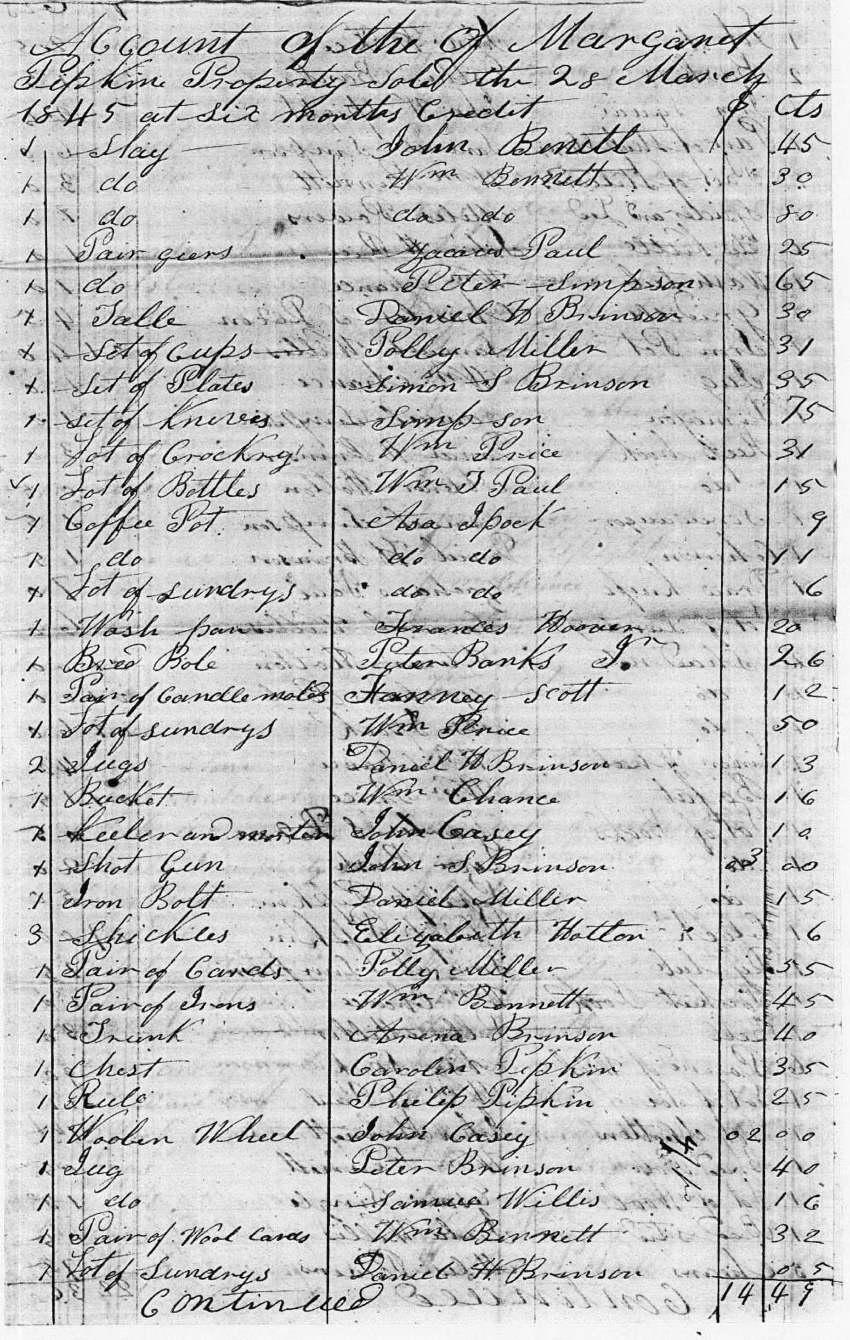 Account of the of Margaret
Pipkin Property Sold the 28 March
1845 at Six months Credit $ Cts
1 Slay John Benett 45
1 do Wm Bennett 30
1 do do do 50
1 Pair giers Paul 25
1 do Peter Simpson 65
1 Table Daniel H Brinson 30
1 Set of Cups Polly Miller 31
1 Set of Plates Simon S Brinson 35
1 set of Knives Simpson 75
1 Lot of Crockry Wm Price 31
1 Lot of Bottles Wm T Paul 15
1 Coffee Pot Asa Ipock 9
1 do do do 11
1 Lot of sundrys do do 6
1 Wash pan Frances Hoover 20
1 Bred Bole Peter Banks Jr 26
1 Pair of Candle moles Fanney Scott 12
1 Lot of sundrys Wm Price 50
2 Jugs Daniel H Brinson 13
1 Bucket Wm Chance 16
1 Keeler and John Casey 10
1 Shot Gun John S Brinson 3 00
1 Iron Bolt Daniel Miller 15
3 Sickles Elizabeth Hotton 6
1 Pair of Cards Polly Miller 55
1 Pair of Irons Wm Bennett 45
1 Trunk Arena Brinson 40
1 Chest Carolin Pipkin 35
1 Rule Philip Pipkin 25
1 Woolen Wheel John Casey 02 00
1 Jug Peter Brinson 40
1 do Samuel Willis 16
1 Pair of Wool Cards Wm Binnett 32
1 Lot of Sundrys Daniel H Brinson 05
Continued 14 49